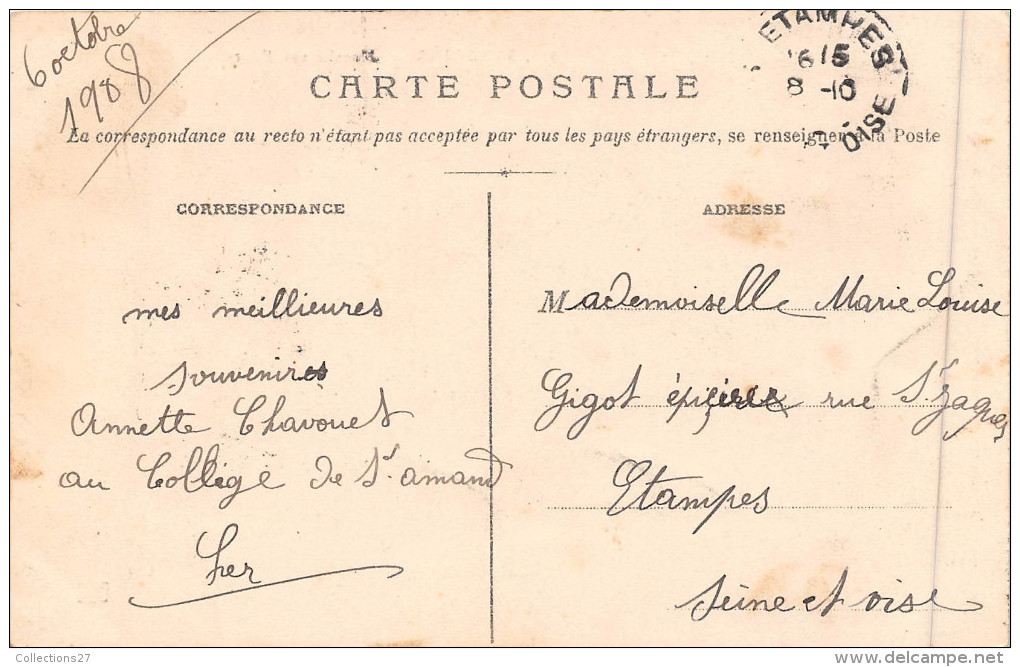 6 octobre
1908
ETAMPES
15
8 -10
OISE
CARTE POSTALE
La correspondance au recto n'étant pas acceptée par tous les pays étrangers, se renseigner à la Poste
CORRESPONDANCE
mes meillieures
souvenires
Annette Chavouet
au Collège de St amand
Cher
ADRESSE
Mademoiselle Marie Louise
Gigot épicière rue St Jaques
Etampes
Seine et oise
Collections27
delcampe.net